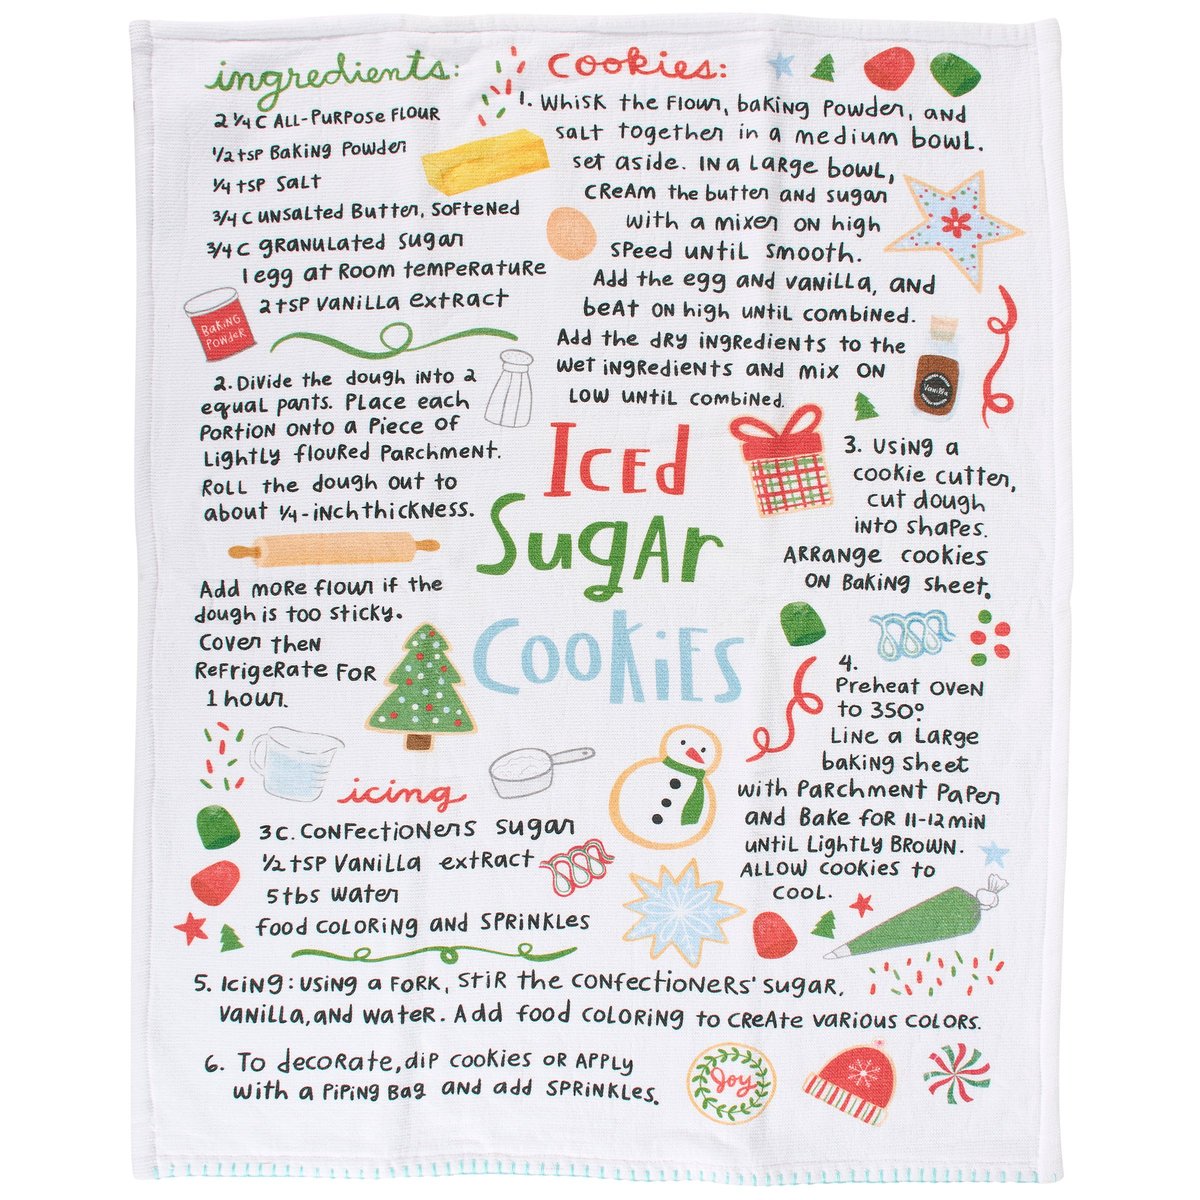 ingredients:
2 ¼ C All-Purpose Flour
½ tsp Baking Powder
¼ tsp Salt
¾ C unsalted Butter, softened
¾ C granulated sugar
1 egg at room temperature
2 tsp vanilla extract
Baking
Powder
cookies:
1. Whisk the flour, baking powder, and
salt together in a medium bowl.
set aside. In a large bowl,
cream the butter and sugar
with a mixer on high
speed until smooth.
Add the egg and vanilla, and
beat on high until combined.
Add the dry ingredients to the
wet ingredients and mix on
low until combined.
Vanilla
2. Divide the dough into 2
equal parts. Place each
portion onto a piece of
lightly floured parchment.
Roll the dough out to
about ¼-inch thickness.
Add more flour if the
dough is too sticky.
Cover then
Refrigerate for
1 hour.
Iced
Sugar
Cookies
3. Using a
cookie cutter,
cut dough
into shapes.
Arrange cookies
on baking sheet.
4.
Preheat oven
to 350°.
Line a large
baking sheet
with parchment paper
and Bake for 11-12 min
until lightly brown.
Allow cookies to
cool.
icing
3 C. confectioners sugar
½ tsp vanilla extract
5 tbs water
food coloring and sprinkles
5. Icing: using a fork, stir the confectioners' sugar,
vanilla, and water. Add food coloring to create various colors.
6. To decorate, dip cookies or apply
with a piping bag and add sprinkles.
Joy